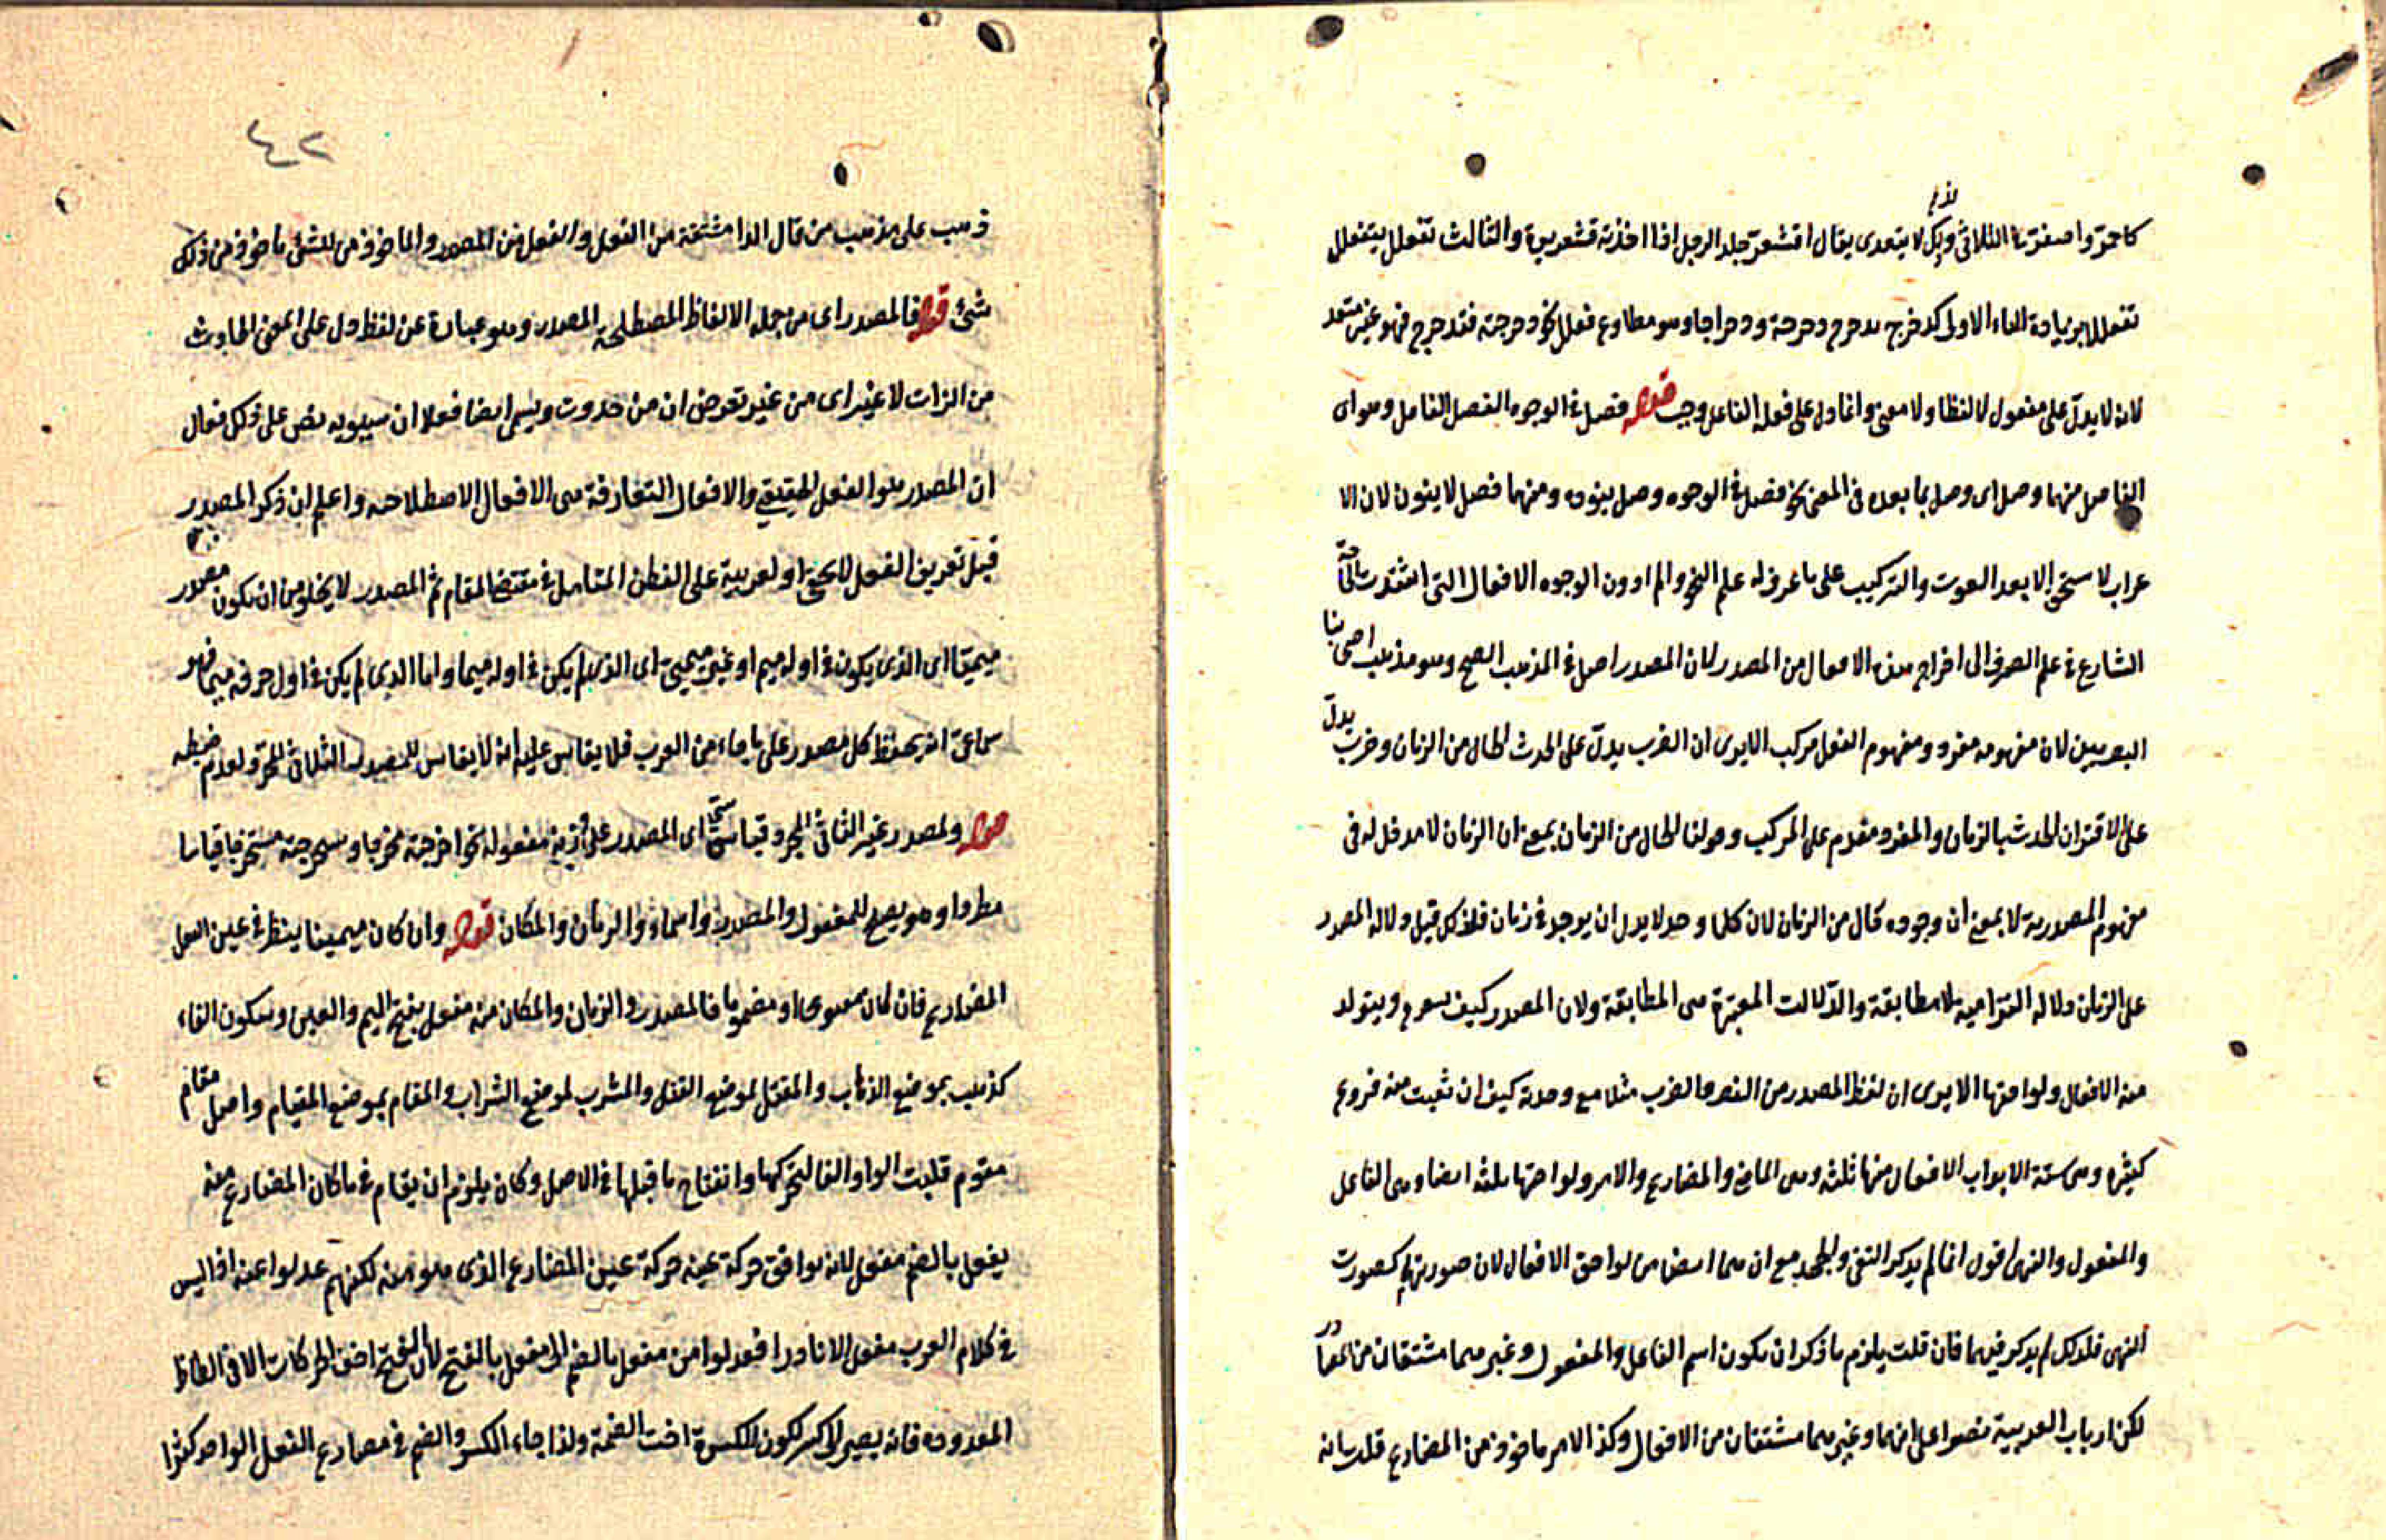 كاحمر واصفر من الثلاثي وذلك لا يتعدى يقال اقشعر جلد الرجل اذا اخذته قشعريرة والثالث تفعلل يتفعلل
لازم
تفعللا بزيادة التاء الاولى كدخرج يدحرج دحرجة ودحراجا وهو مطاوع فعلل نحو دحرجته فتدحرج فهو غير متعد
لانه لا يدل على مفعول لا لفظا ولا معنى وانما دل على فعله الفاعل وحسب قوله فصل في الوجوه الفصل الفاصل وهو اى
الفاصل منهما وصل اى وصل بما بعده فى المعنى نحو فصل في الوجوه وصل ينون ومنهما فصل لا ينون لان الا
عراب لا يستحق الا بعد العوت والتركيب على ما عرف له علم النحو والمراد ون الوجوه الافعال التى اشتدت حاجة
الشارع في علم الصرف الى اخراج هذه الافعال من المصدر لان المصدر اصل في المذهب الصح وهو مذهب اصحابنا
البصريين لان مفهومه مفرد ومفهوم الفعل مركب الا يرى ان الضرب يدل على الحدث الحال من الزمان وضرب يدل
على الاقتران الحدث بالزمان والمفرد مقدم على المركب وقولنا الحال من الزمان بمعنى ان الزمان لا مدخل له فى
مفهوم المصدرية لا بمعنى ان وجوده كال من الزمان لان كلما وحد لا يدل ان يوجد في زمان فلذلك قيل دلالة المصدر
على الزمان دلالة التزامية لا مطابقة والدلالت المعتبرة هى المطابقة ولان المصدر كيف يسرع ويتولد
منه الافعال ولواحقها الا يرى ان لفظ المصدر من النصر والضرب مثلا مع وحدته كيف ان تشبت منه فروع
كثيره وهى ستة الابواب الافعال منها ثلثه وهى الماضى والمضارع والامر ولواحقها ثلثه ايضا وهى الفاعل
والمفعول والنهى اقول انما لم يذكر النفى والجحد مع ان هما ايضا من لواحق الافعال لان صورتهم كصورت
النهى فلذلك لم يذكر فيهما فان قلت يلزم ما ذكر ان يكون اسم الفاعل والمفعول وغيرهما مشتقان من المصادر
لكن ارباب العربية نصوا على انهما وغيرهما مشتقان من الافعال وكذا الامر ماخوذ من المضارع قلت انه
٤٢
ذهب على مذهب من قال انها مشتقة من الفعل والفعل من المصدر والماخوذ من الشئ ماخوذ من ذلك
شئ قوله فالمصدر اى من جملة الالفاظ المصطلحة المصدر وهو عبارة عن لفظ دل على المعنى الحادث
من الذات لا غير اى من غير تعرض ان من حدوث ويسمى ايضا فعلا ان سيبويه نص على ذلك فقال
ان المصدر هو الفعل الحقيقى والافعال المتعارفة هى الافعال الاصطلاحيه واعلم ان ذكر المصدر
قبل تعريف الفعل لا يحق اولعربية على الفطن المتامل في مقتضى المقام ثم المصدر لا يخلو من ان يكون مصدر
ميميا اى الذى يكون في اوله ميم او غير ميمى اى الذى لم يكن في اوله ميما واما الذى لم يكن في اول حرفه ميما فهو
سماعى انه يحفظ كل مصدر على ما جاء من العرب فلا يقاس عليه انه لا يقاس للمصدر الثلاثى المجرد لعدم ضبطه
قوله ولمصدر غير الثلاثى المجرد قياسى اى المصدر على زنة مفعوله نحو اخرجته مخرجا وستخرجته مستخرجا قياسا
مطردا وهو يصح للمفعول والمصدر واسماء والزمان والمكان قوله وان كان ميميا ينظر في عين الفعل
المضارع فان كان مفتوحا او مضموما فالمصدر والزمان والمكان منه مفعل بفتح الميم والعين وسكون الفاء
كذهب بموضع الذهاب والمقتل لموضع القتل والمشرب لموضع الشراب والمقام بموضع القيام واصل مقام
مقوم قلبت الواو الفا لتحركها وانفتاح ما قبلها في الاصل وكان يلزم ان يقام في ما كان المضارع منه
يفعل بالضم مفعل لانه يوافق حركة عينه حركة عين المضارع الذى هو منه لكنهم عدلوا عنه اذ اليس
في كلام العرب مفعل الا نادرا فعدلوا من مفعل بالضم الى مفعل بالفتح لان الفتح اخف الحركات الا فى الفاظ
المعدوده فانه يصير الى الكسر لكون الكسرة اخت الضمة ولذا جاء الكسر والضم في مضارع الفعل الواحد كثيرا